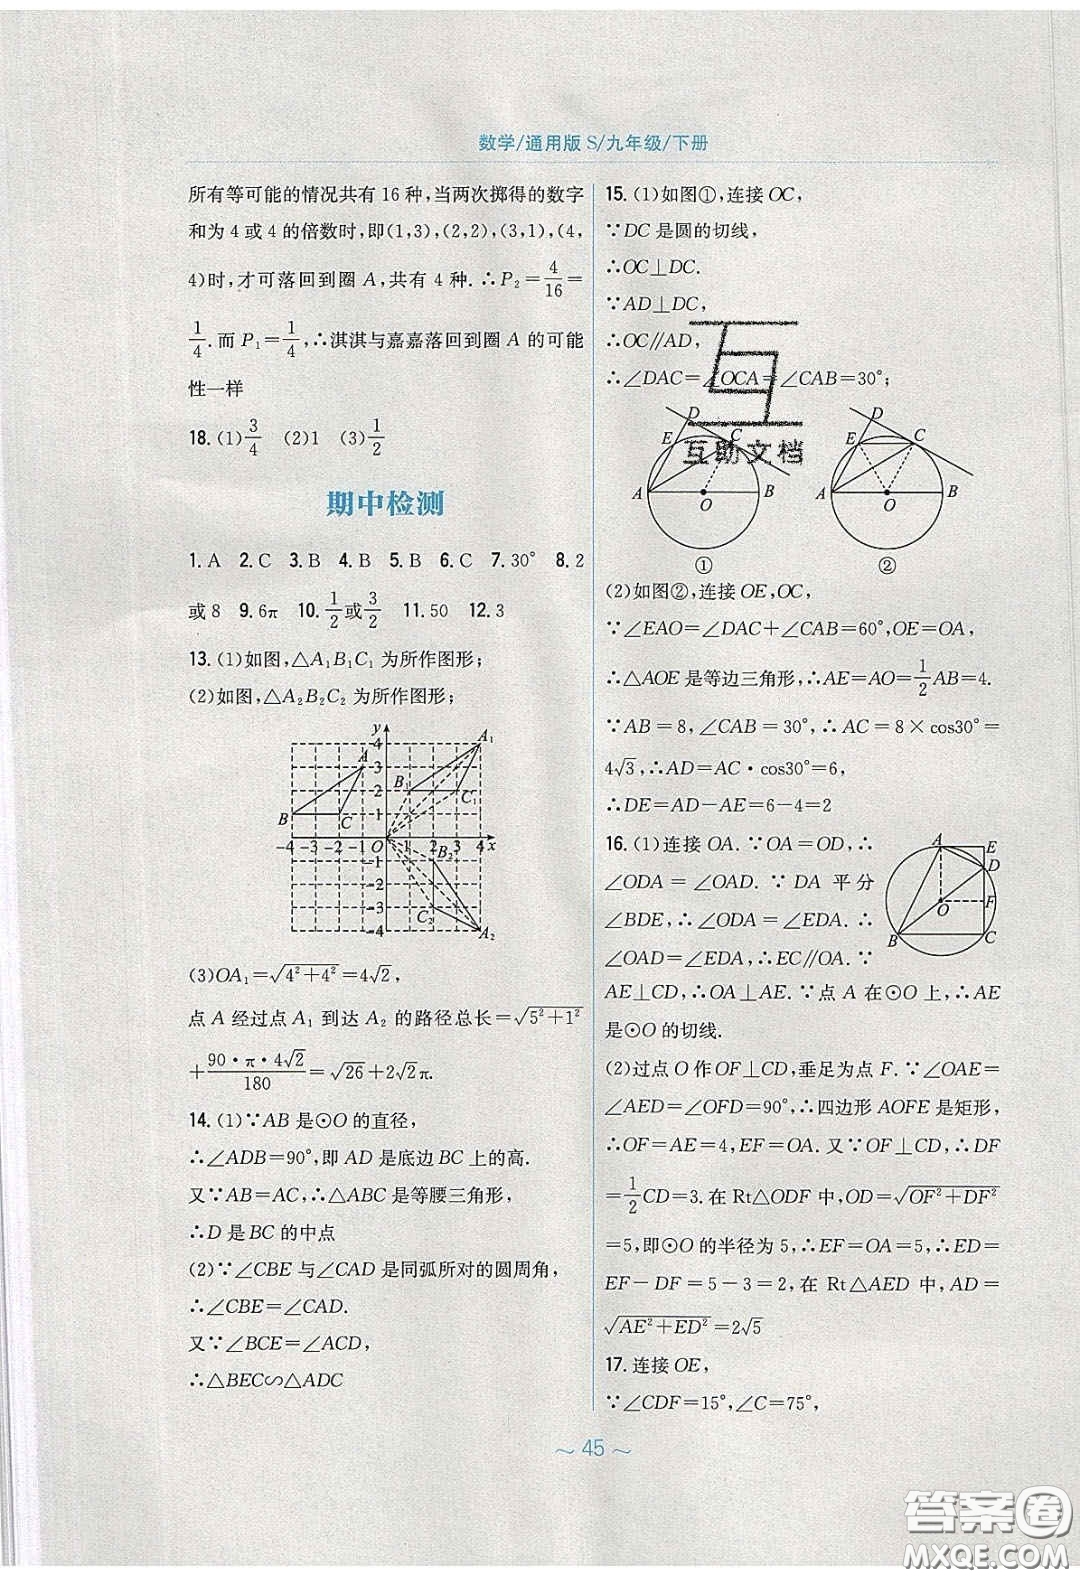 数学/通用版 S/九年级/下册
所有等可能的情况共有 16 种,当两次掷得的数字
和为 4 或 4 的倍数时,即(1,3),(2,2),(3,1),(4,
4)时,才可落回到圈 A,共有 4 种.∴P₂=4/16=
1/4.而 P₁=1/4,∴淇淇与嘉嘉落回到圈 A 的可能
性一样
18.(1)3/4 (2)1 (3)1/2
期中检测
1.A 2.C 3.B 4.B 5.B 6.C 7.30° 8.2
或8 9.6π 10.1/2或3/2 11.50 12.3
13.(1)如图,△A₁B₁C₁ 为所作图形;
(2)如图,△A₂B₂C₂ 为所作图形;
y
A₁
4
A
3
B₁
2
C₁
B
C
1
-4 -3 -2 -1 O 1 2 3 4 x
B₂
-1
-2
-3
C₂
-4
A₂
(3)OA₁=√(4²+4²)=4√2,
点 A 经过点 A₁ 到达 A₂ 的路径总长=√(5²+1²)
+(90·π·4√2)/180=√26+2√2π.
14.(1)∵AB 是⊙O 的直径,
∴∠ADB=90°,即 AD 是底边 BC 上的高.
又∵AB=AC,∴△ABC 是等腰三角形,
∴D 是 BC 的中点
(2)∵∠CBE 与∠CAD 是同弧所对的圆周角,
∴∠CBE=∠CAD.
又∵∠BCE=∠ACD,
∴△BEC∽△ADC
15.(1)如图①,连接 OC,
∵DC 是圆的切线,
∴OC⊥DC.
∵AD⊥DC,
∴OC∥AD,
∴∠DAC=∠OCA=∠CAB=30°;
互助文档
D
E
C
A
O
B
①
D
E
C
A
O
B
②
(2)如图②,连接 OE,OC,
∵∠EAO=∠DAC+∠CAB=60°,OE=OA,
∴△AOE 是等边三角形,∴AE=AO=1/2AB=4.
∵AB=8,∠CAB=30°,∴AC=8×cos30°=
4√3,∴AD=AC·cos30°=6,
∴DE=AD-AE=6-4=2
16.(1)连接 OA.∵OA=OD,∴
∠ODA=∠OAD.∵DA 平分
∠BDE,∴∠ODA=∠EDA.∴
∠OAD=∠EDA,∴EC∥OA.∵
AE⊥CD,∴OA⊥AE.∵点 A 在⊙O 上,∴AE
是⊙O 的切线.
A
E
D
O
F
B
C
(2)过点 O 作 OF⊥CD,垂足为点 F.∵∠OAE=
∠AED=∠OFD=90°,∴四边形 AOFE 是矩形,
∴OF=AE=4,EF=OA.又∵OF⊥CD,∴DF
=1/2CD=3.在 Rt△ODF 中,OD=√(OF²+DF²)
=5,即⊙O 的半径为 5,∴EF=OA=5,∴ED=
EF-DF=5-3=2,在 Rt△AED 中,AD=
√(AE²+ED²)=2√5
17.连接 OE,
∵∠CDF=15°,∠C=75°,
~ 45 ~
答案圈
MXQE.COM